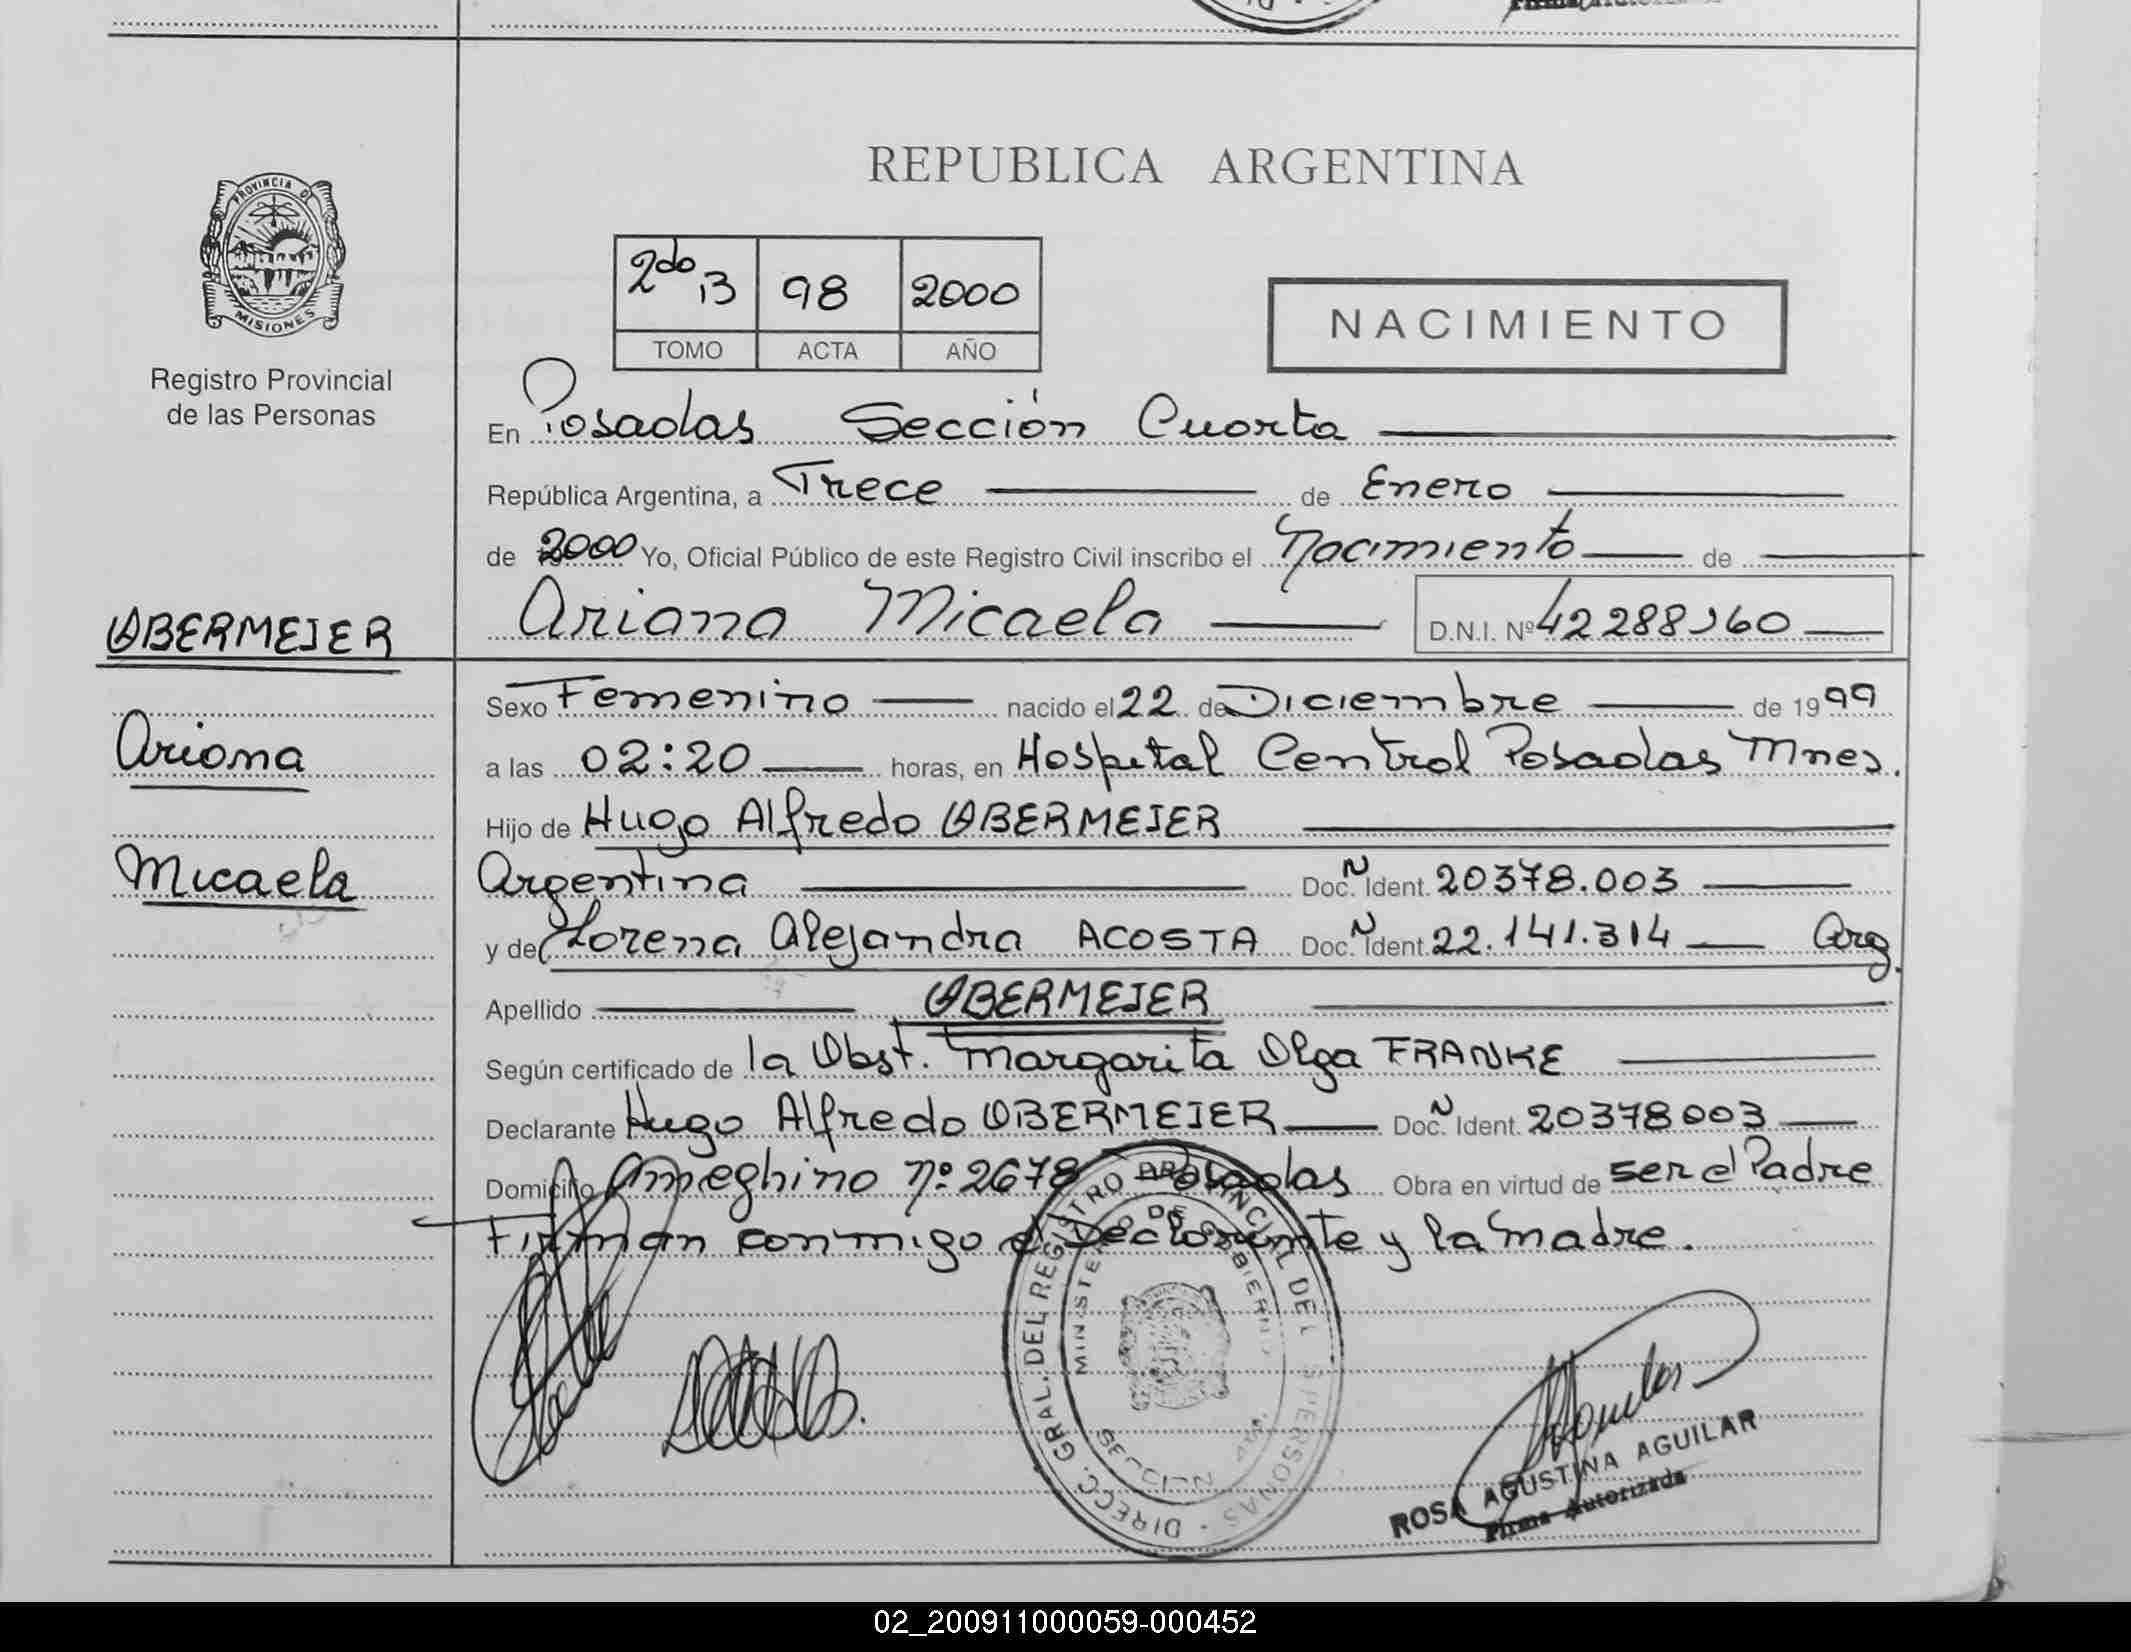 PROVINCIA DE
MISIONES
Registro Provincial
de las Personas
OBERMEJER
Ariana
Micaela
REPUBLICA ARGENTINA
2do B 98 2000
TOMO ACTA AÑO
NACIMIENTO
En Posadas Sección Cuarta
República Argentina, a Trece de Enero
de 2000 Yo, Oficial Público de este Registro Civil inscribo el Nacimiento de
Ariana Micaela D.N.I. Nº 42288360
Sexo Femenino nacido el 22 de Diciembre de 1999
a las 02:20 horas, en Hospital Central Posadas Mnes.
Hijo de Hugo Alfredo OBERMEJER
Argentina Doc. Ident. N 20378.003
y de Lorena Alejandra ACOSTA Doc. Ident. N 22.141.314 Arg.
Apellido OBERMEJER
Según certificado de la Obst. Margarita Olga FRANKE
Declarante Hugo Alfredo OBERMEJER Doc. Ident. N 20378003
Domicilio Ameghino Nº 2678 Posadas Obra en virtud de ser el Padre
Firman conmigo el Declarante y la Madre.
DIRECC. GRAL. DEL REGISTRO PROVINCIAL DE PERSONAS
MINISTERIO DE GOBIERNO
MISIONES
ROSA AGUSTINA AGUILAR
Firma Autorizada
02_200911000059-000452